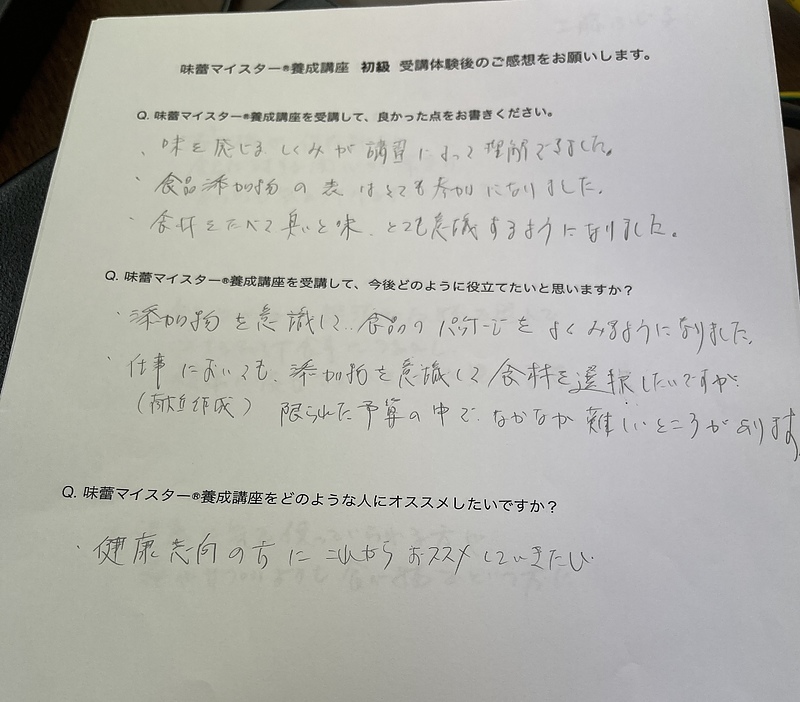 味蕾マイスター®養成講座 初級 受講体験後のご感想をお願いします。
Q. 味蕾マイスター®養成講座を受講して、良かった点をお書きください。
、味を感じるしくみが講習によって理解できました。
・食品添加物の表はとても参加になりました。
・食材をたべて臭いと味、とても意識するようになりました。
Q. 味蕾マイスター®養成講座を受講して、今後どのように役立てたいと思いますか？
・添加物を意識して、食品のパッケージをよくみるようになりました。
・仕事においても、添加物を意識して食材を選択したいですが
(献立作成) 限られた予算の中で、なかなか難しいところがあります
Q. 味蕾マイスター®養成講座をどのような人にオススメしたいですか？
・健康志向の方にこれからおススメしていきたい